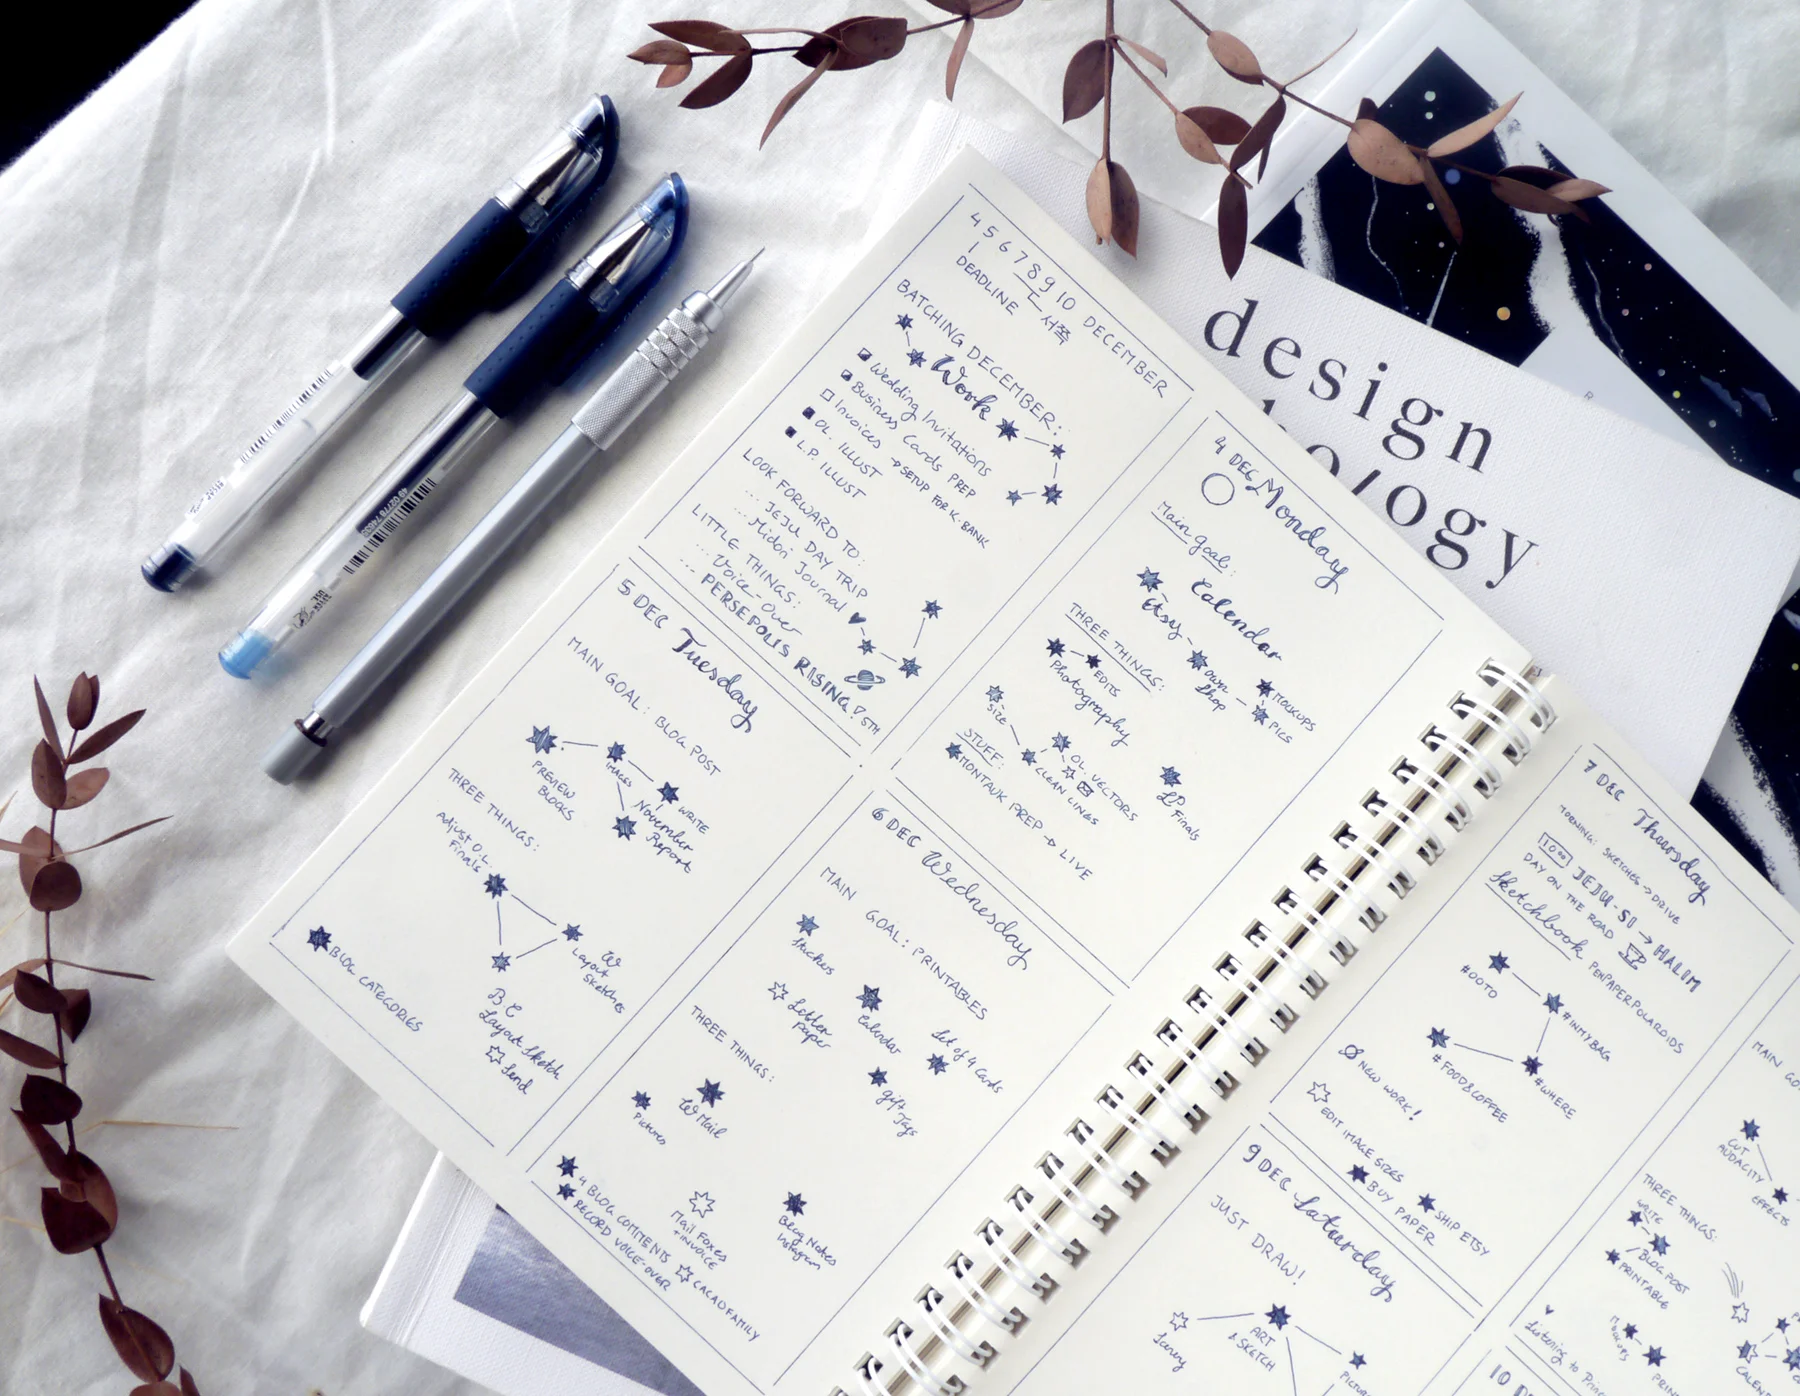 4 5 6 7 8 9 10 DECEMBER
DEADLINE
BATCHING DECEMBER:
Work
Wedding Invitations
Business Cards PREP
Invoices → SETUP FOR K-BANK
OL. ILLUST
L.P. ILLUST
LOOK FORWARD TO:
... JEJU DAY TRIP
... Midori Journal
LITTLE THINGS:
... Voice-Over
... PERSEPOLIS RISING! 5TH
4 DEC Monday
Main goal:
Calendar
Etsy
own
Shop
MOCKUPS
PICS
THREE THINGS:
EDITS
Photography
SIZE
OL. VECTORS
CLEAN LINES
LP
Finals
STUFF:
MONTAUK PREP → LIVE
5 DEC Tuesday
MAIN GOAL: BLOG POST
PREVIEW
BLOCKS
IMAGES
WRITE
November
Report
THREE THINGS:
Adjust O.L.
Finals
W
Layout
Sketches
BC
Layout Sketch
Send
BLOG CATEGORIES
6 DEC Wednesday
MAIN GOAL: PRINTABLES
Stickers
Letter
paper
Calendar
Set of 4 Cards
gift
Tags
THREE THINGS:
Pictures
W Mail
Mail Foxes
+ INVOICE
Blog Notes
Instagram
4 BLOG COMMENTS
RECORD VOICE-OVER
CACAOFAMILY
7 DEC Thursday
MORNING: SKETCHES → DRIVE
10:00 JEJU-SI → HALIM
DAY ON THE ROAD
Sketchbook PENPAPERPOLAROIDS
#OOTD
#INMYBAG
#FOOD&COFFEE
#WHERE
NEW WORK!
EDIT IMAGE SIZES
BUY PAPER
SHIP ETSY
9 DEC Saturday
JUST DRAW!
Scenery
ART
& SKETCH
MAIN
CUT
AUDACITY
EFFECTS
THREE THINGS:
WRITE
BLOG POST
PRINTABLE
Listening to
10
design
ology